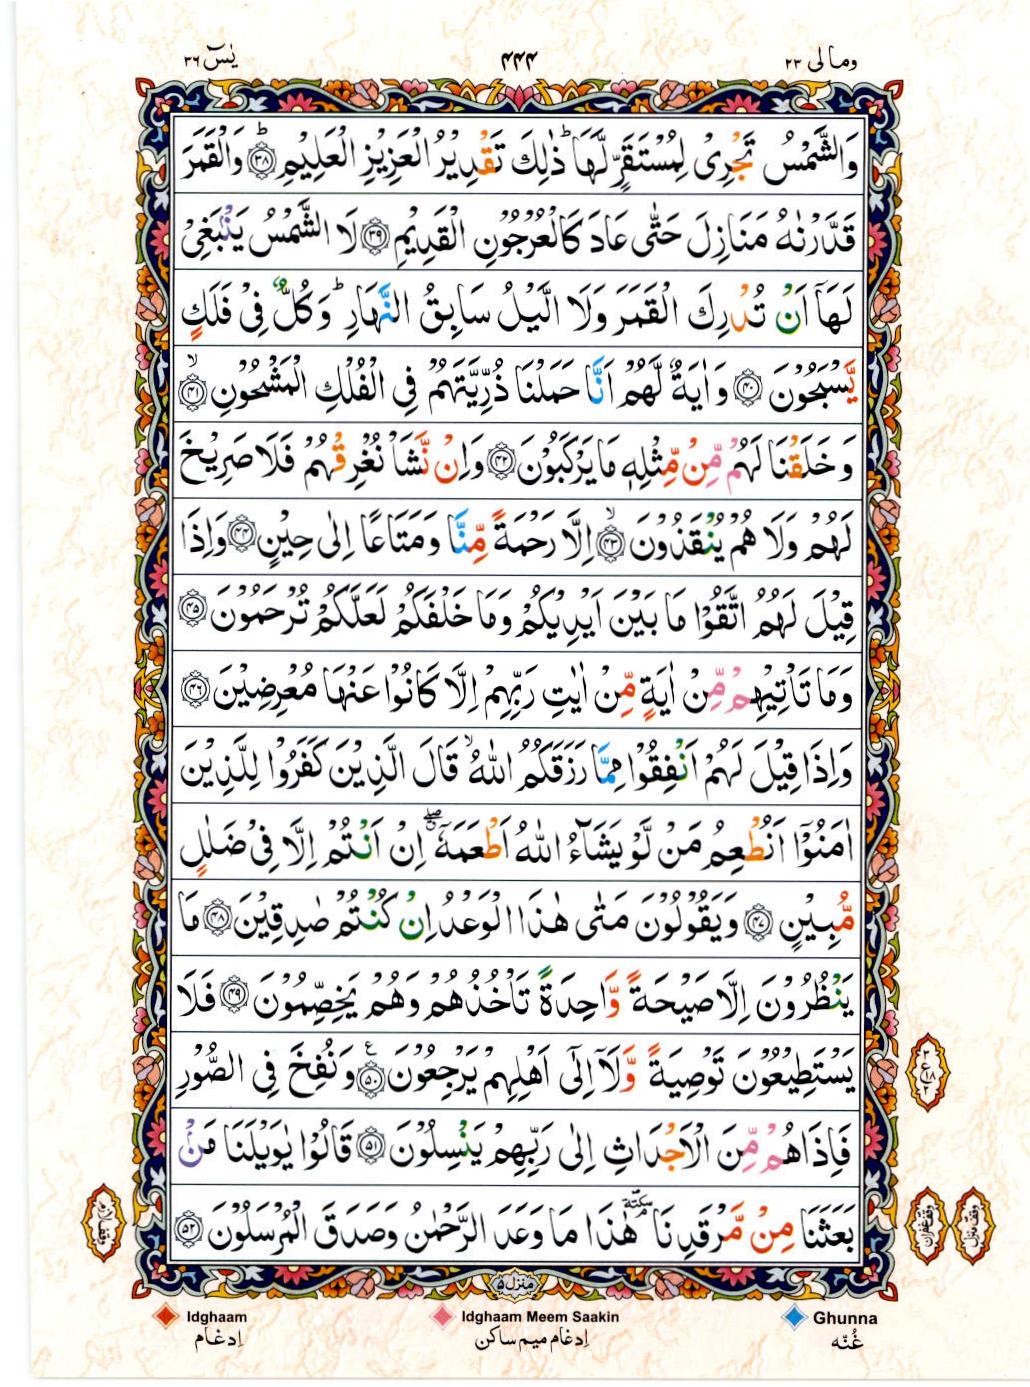 یٰسٓ ۳۶ ۴۴۴ ومالی ۲۳
وَالشَّمۡسُ تَجۡرِىۡ لِمُسۡتَقَرٍّ لَّهَا ؕ ذٰلِكَ تَقۡدِيۡرُ الۡعَزِيۡزِ الۡعَلِيۡمِ ؕ‏ ﴿۳۸﴾ وَالۡقَمَرَ
قَدَّرۡنٰهُ مَنَازِلَ حَتّٰى عَادَ كَالۡعُرۡجُوۡنِ الۡقَدِيۡمِ ﴿۳۹﴾ لَا الشَّمۡسُ يَنۡۢبَغِىۡ
لَهَاۤ اَنۡ تُدۡرِكَ الۡقَمَرَ وَلَا الَّيۡلُ سَابِقُ النَّهَارِ‌ؕ وَكُلٌّ فِىۡ فَلَكٍ
يَّسۡبَحُوۡنَ ﴿۴۰﴾ وَاٰيَةٌ لَّهُمۡ اَنَّا حَمَلۡنَا ذُرِّيَّتَهُمۡ فِى الۡفُلۡكِ الۡمَشۡحُوۡنِۙ ﴿۴۱﴾
وَخَلَقۡنَا لَهُمۡ مِّنۡ مِّثۡلِهٖ مَا يَرۡكَبُوۡنَ ﴿۴۲﴾ وَاِنۡ نَّشَاۡ نُغۡرِقۡهُمۡ فَلَا صَرِيۡخَ
لَهُمۡ وَلَا هُمۡ يُنۡقَذُوۡنَۙ ﴿۴۳﴾ اِلَّا رَحۡمَةً مِّنَّا وَمَتَاعًا اِلٰى حِيۡنٍ ﴿۴۴﴾ وَاِذَا
قِيۡلَ لَهُمُ اتَّقُوۡا مَا بَيۡنَ اَيۡدِيۡكُمۡ وَمَا خَلۡفَكُمۡ لَعَلَّكُمۡ تُرۡحَمُوۡنَ ﴿۴۵﴾
وَمَا تَاۡتِيۡهِمۡ مِّنۡ اٰيَةٍ مِّنۡ اٰيٰتِ رَبِّهِمۡ اِلَّا كَانُوۡا عَنۡهَا مُعۡرِضِيۡنَ ﴿۴۶﴾
وَاِذَا قِيۡلَ لَهُمۡ اَنۡفِقُوۡا مِمَّا رَزَقَكُمُ اللّٰهُ ۙ قَالَ الَّذِيۡنَ كَفَرُوۡا لِلَّذِيۡنَ
اٰمَنُوۡۤا اَنُطۡعِمُ مَنۡ لَّوۡ يَشَآءُ اللّٰهُ اَطۡعَمَهٗۤ ۖ اِنۡ اَنۡتُمۡ اِلَّا فِىۡ ضَلٰلٍ
مُّبِيۡنٍ ﴿۴۷﴾ وَيَقُوۡلُوۡنَ مَتٰى هٰذَا الۡوَعۡدُ اِنۡ كُنۡتُمۡ صٰدِقِيۡنَ ﴿۴۸﴾ مَا
يَنۡظُرُوۡنَ اِلَّا صَيۡحَةً وَّاحِدَةً تَاۡخُذُهُمۡ وَهُمۡ يَخِصِّمُوۡنَ ﴿۴۹﴾ فَلَا
يَسۡتَطِيۡعُوۡنَ تَوۡصِيَةً وَّلَاۤ اِلٰٓى اَهۡلِهِمۡ يَرۡجِعُوۡنَ ﴿۵۰﴾ ع وَنُفِخَ فِى الصُّوۡرِ
۳ ع ۱۸ ۲
فَاِذَا هُمۡ مِّنَ الۡاَجۡدَاثِ اِلٰى رَبِّهِمۡ يَنۡسِلُوۡنَ ﴿۵۱﴾ قَالُوۡا يٰوَيۡلَنَا مَنۡۢ
بَعَثَنَا مِنۡ مَّرۡقَدِنَاۘؔ سكتة هٰذَا مَا وَعَدَ الرَّحۡمٰنُ وَصَدَقَ الۡمُرۡسَلُوۡنَ ﴿۵۲﴾
وقف منزل وقف غفران وقف لازم
منزل ۵
Idghaam Idghaam Meem Saakin Ghunna
اِدغام اِدغام میم ساکن غُنّه